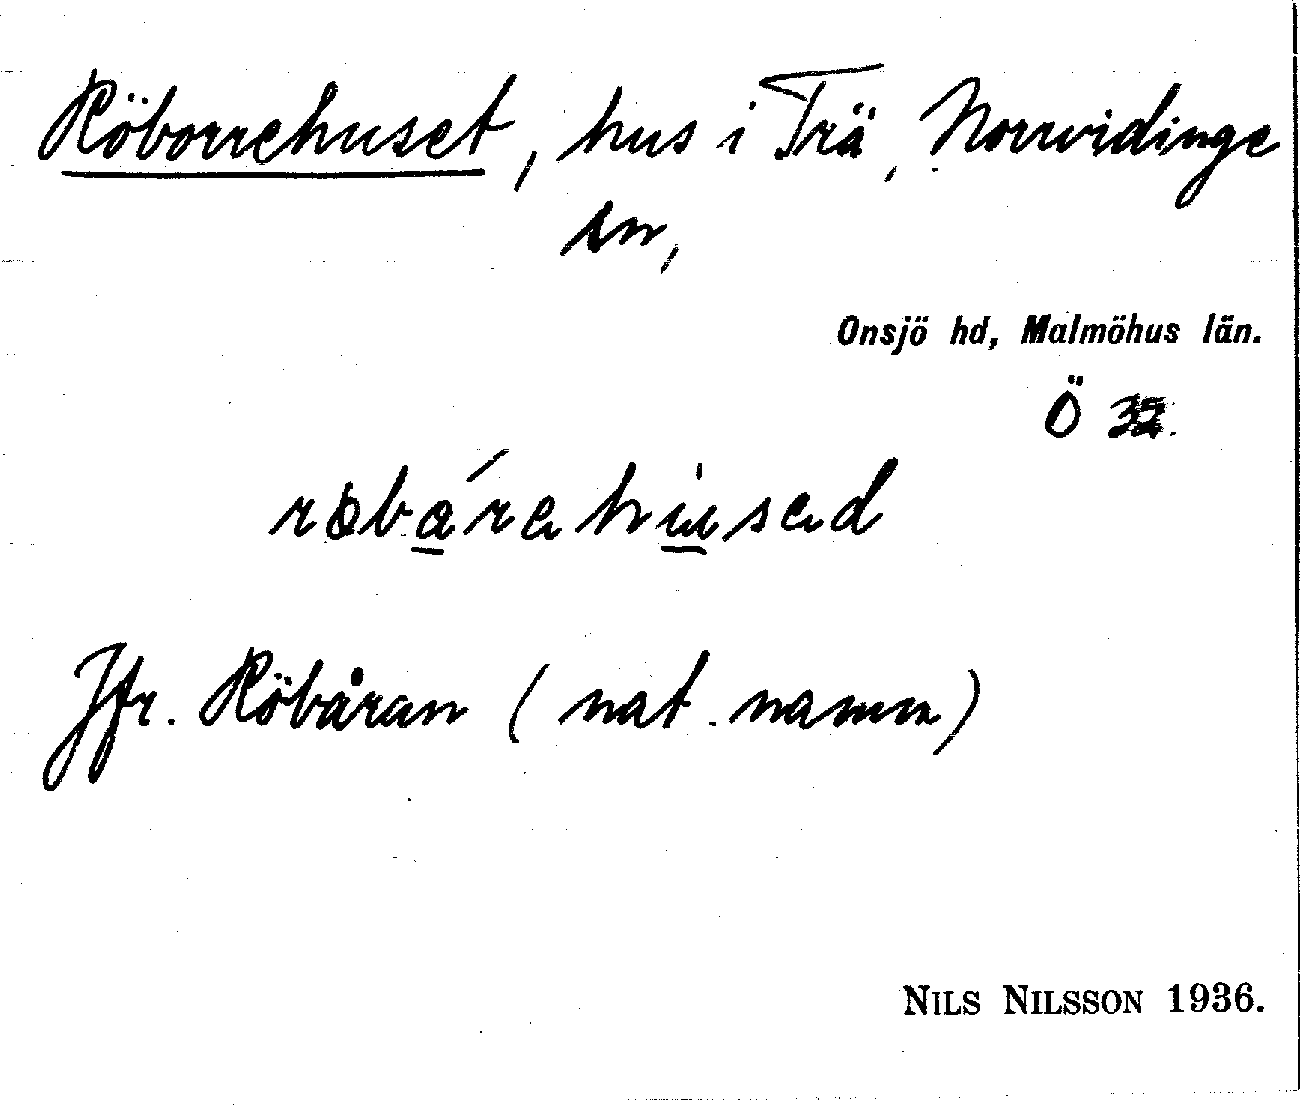 Röborrehuset, hus i Trä, Norrvidinge
sn,
Onsjö hd, Malmöhus län.
Ö
Jfr. Röbåran (nat. namn)
NILS NILSSON 1936.